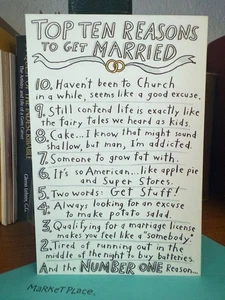 TOP TEN REASONS
TO GET MARRIED
10. Haven't been to Church
in a while, seems like a good excuse.
9. Still contend life is exactly like
the fairy tales we heard as kids.
8. Cake... I know that might sound
shallow, but man, I'm addicted.
7. Someone to grow fat with.
6. It's so American... like apple pie
and Super Stores.
5. Two words: Get Stuff!
4. Always looking for an excuse
to make potato salad.
3. Qualifying for a marriage license
makes you feel like a "somebody."
2. Tired of running out in the
middle of the night to buy batteries.
And the NUMBER ONE Reason...
MARKETPLACE.